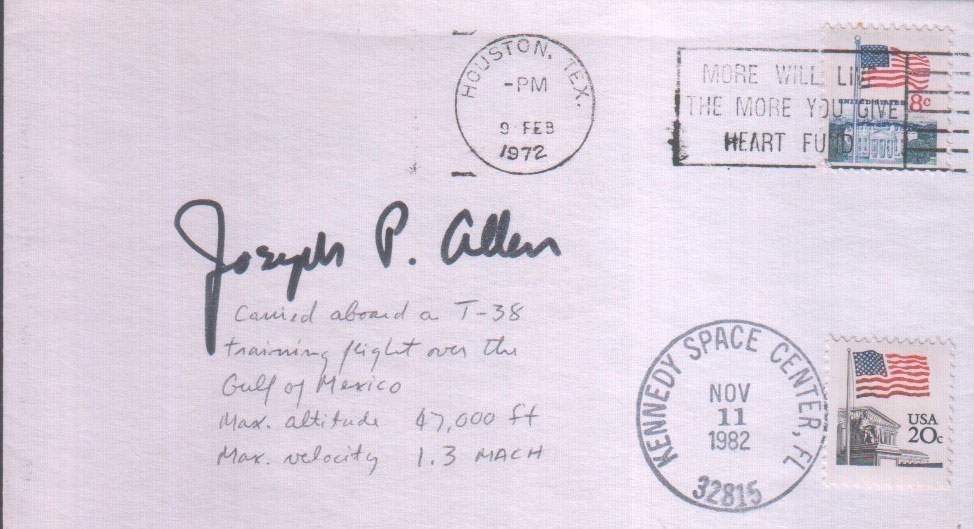 HOUSTON, TEX.
-PM
9 FEB
1972
MORE WILL LIV
THE MORE YOU GIVE
HEART FUND
8c
Joseph P. Allen
Carried aboard a T-38
training flight over the
Gulf of Mexico
Max. altitude 47,000 ft
Max. velocity 1.3 MACH
KENNEDY SPACE CENTER, FL
NOV
11
1982
32815
USA
20c